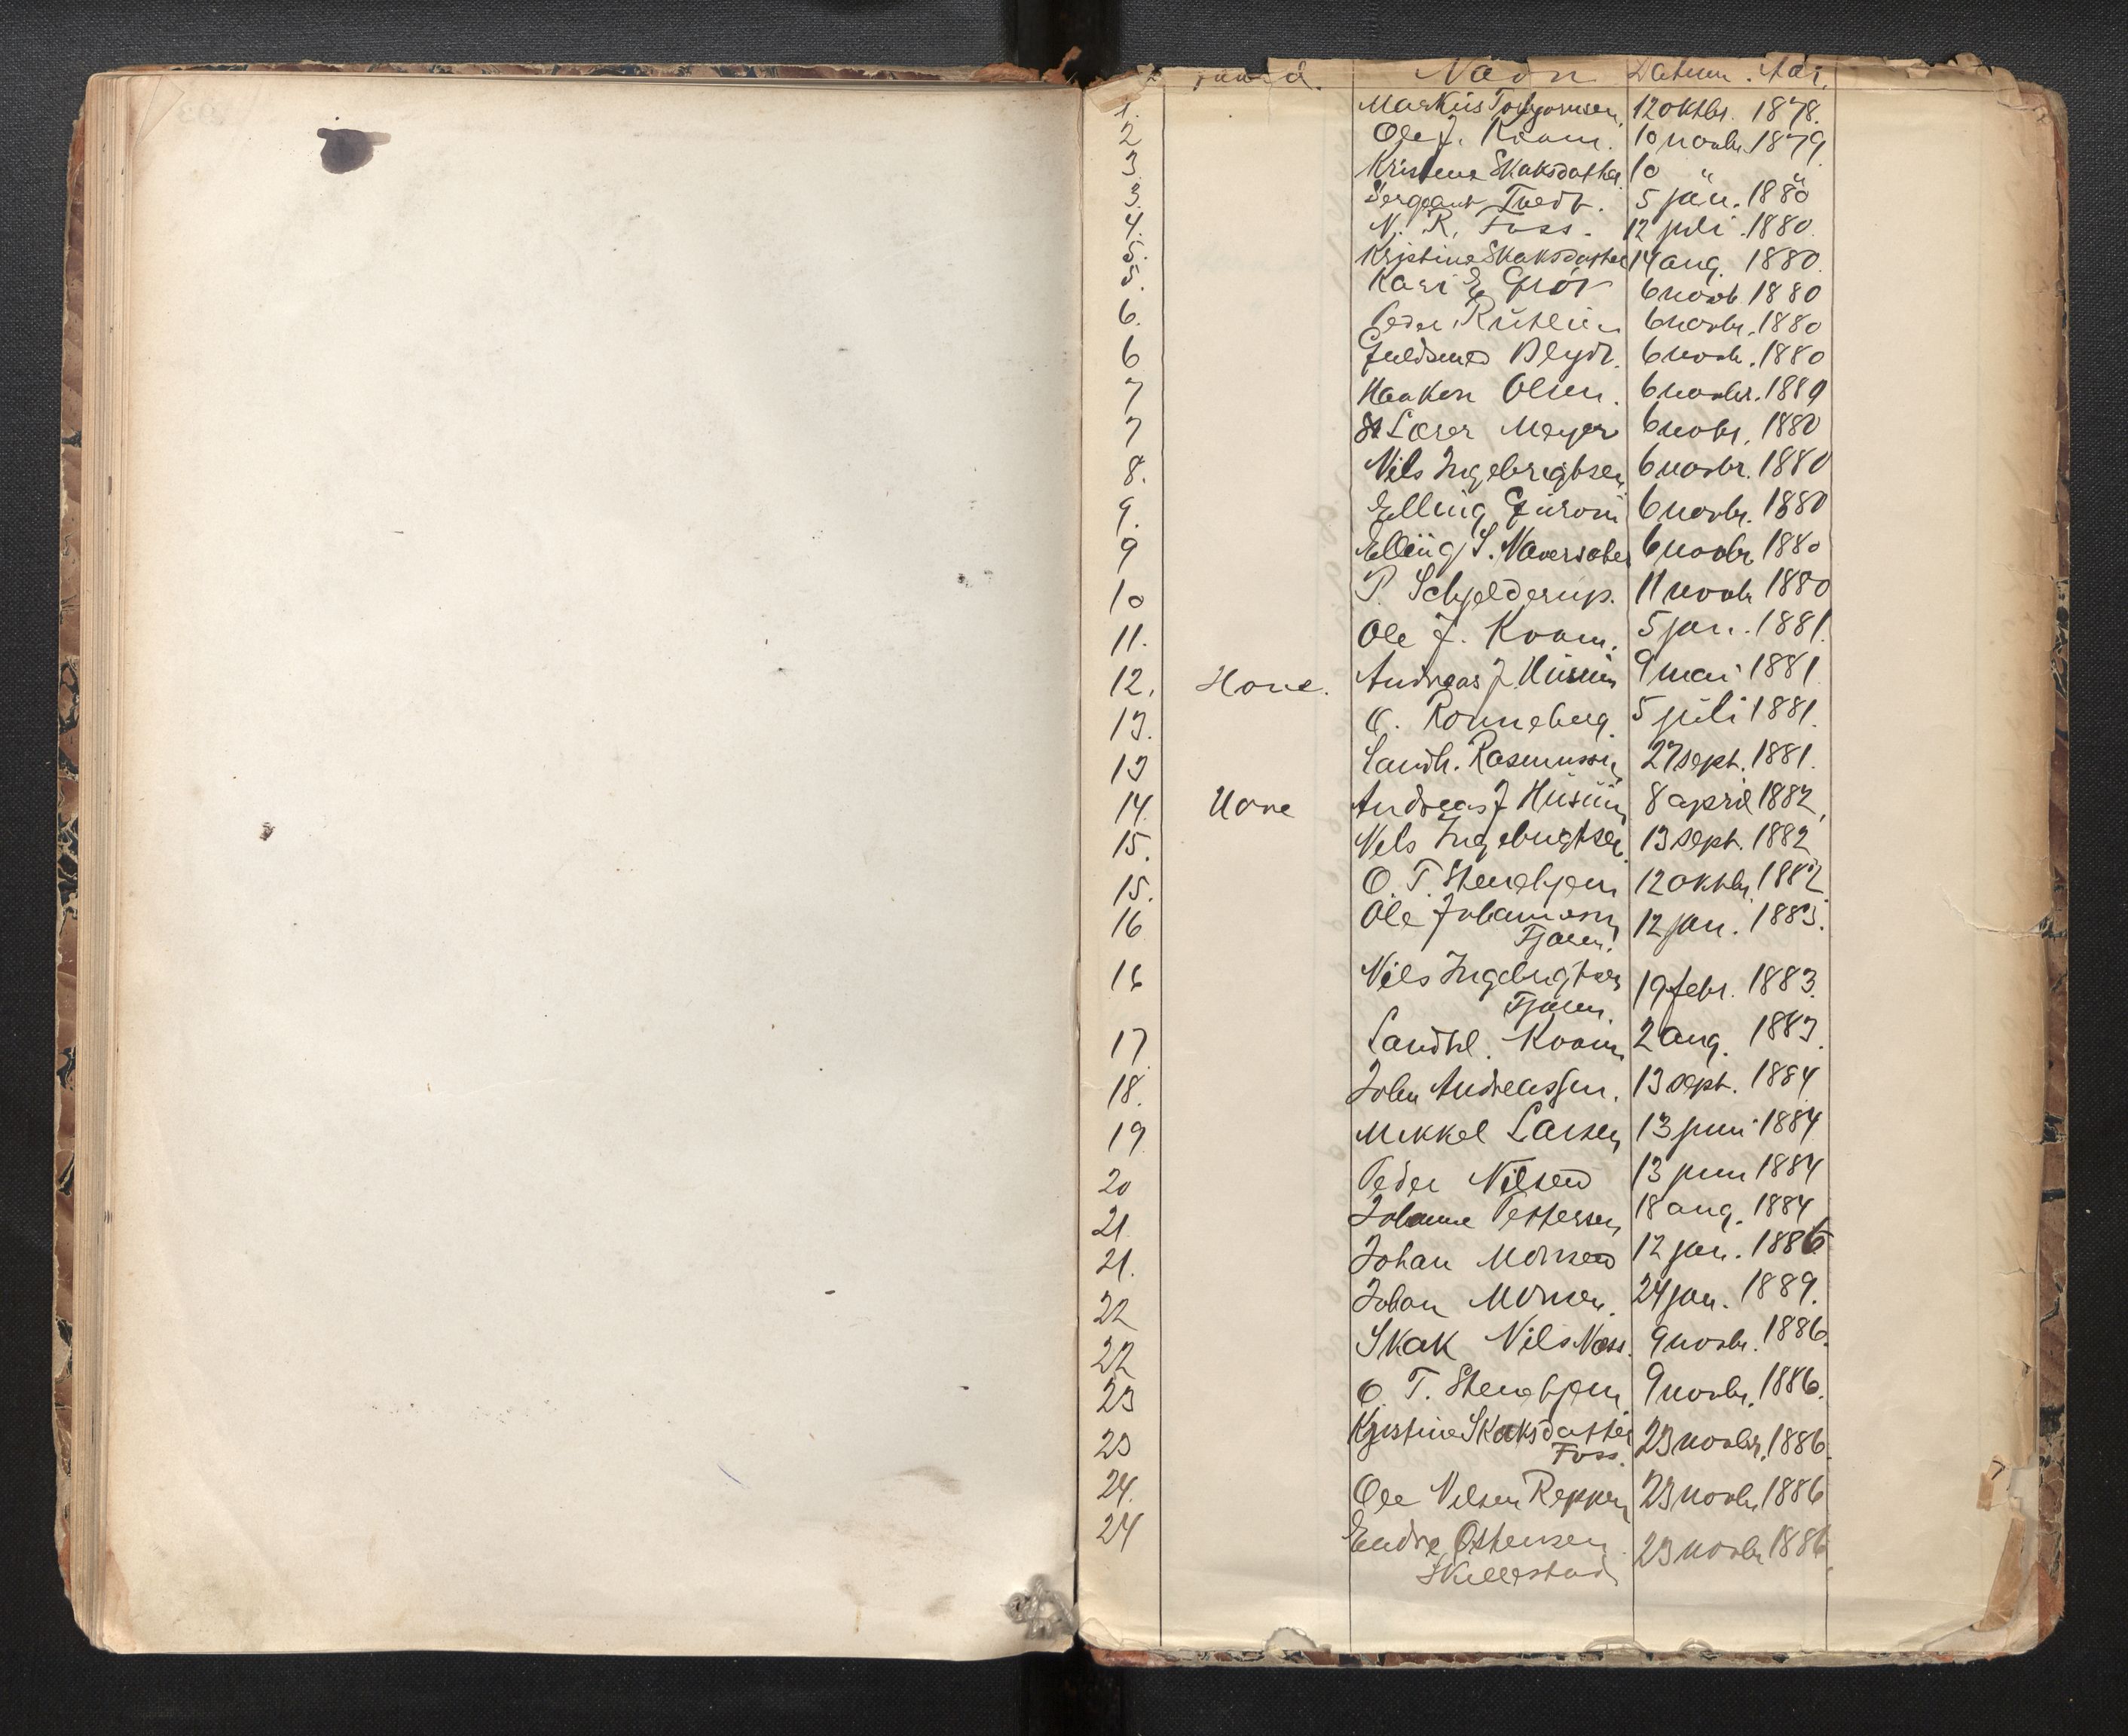 Navn Datum. Aar.
1. Markus Torbjørnsen. 12 oktbr. 1878.
2 Ole J. Kvam. 10 novbr. 1879.
3 Kristense Skaksdatter. 10 " "
3. Sergeant Tvedt. 5 jan. 1880
4. N. R. Foss. 12 juli. 1880.
5. Kristine Skaksdatter 14 aug. 1880.
5. Kari E. 6 novb. 1880
6. Peder 6 novbr. 1880
6 Guldsmed Blydt. 6 novb. 1880
7 Haakon Olsen. 6 novbr. 1880
7 Lærer Meyer 6 novbr. 1880
8. Nils Ingebrigtsen 6 novbr. 1880
9. Elling 6 novbr. 1880
9 Elling S. 6 novbr 1880
10 P. Schjelderup. 11 novbr 1880
11. Ole J. Kvam. 5 jan. 1881.
12. Hove. Andreas J. Husum 9 mai 1881.
13. O. Rønneberg. 5 juli 1881.
13 Landh. Rasmussen 27 sept. 1881.
14. Hove Andreas J Husum 8 april 1882.
15. Nils Ingebrigtsen. 13 sept. 1882
15. O. T. Stenehjem 12 oktbr. 1882
16 Ole Johannesen 12 jan. 1883.
Tjøren.
16 Nils Ingebrigtsen 19 febr. 1883.
Tjøren.
17 Landhl. Kvam 2 aug. 1883.
18. John Andreassen. 13 sept. 1884
19 Mikkel Larsen 13 juni 1884
20 Peder Nilsen 13 juni 1884
21. Johanne Pettersen 18 aug. 1884
21. Johan Monsen 12 jan. 1886
22 Johan Monsen. 24 jan. 1889.
22 Skak Nils Næss. 9 novbr. 1886.
23 O. T. Stenehjem 9 novbr. 1886.
23 Kristine Skaksdatter 23 novbr. 1886.
Foss.
24. Ole Nilsen Reppen 23 novbr 1886
24 Endre Østensen 23 novbr 1886
Skillestad